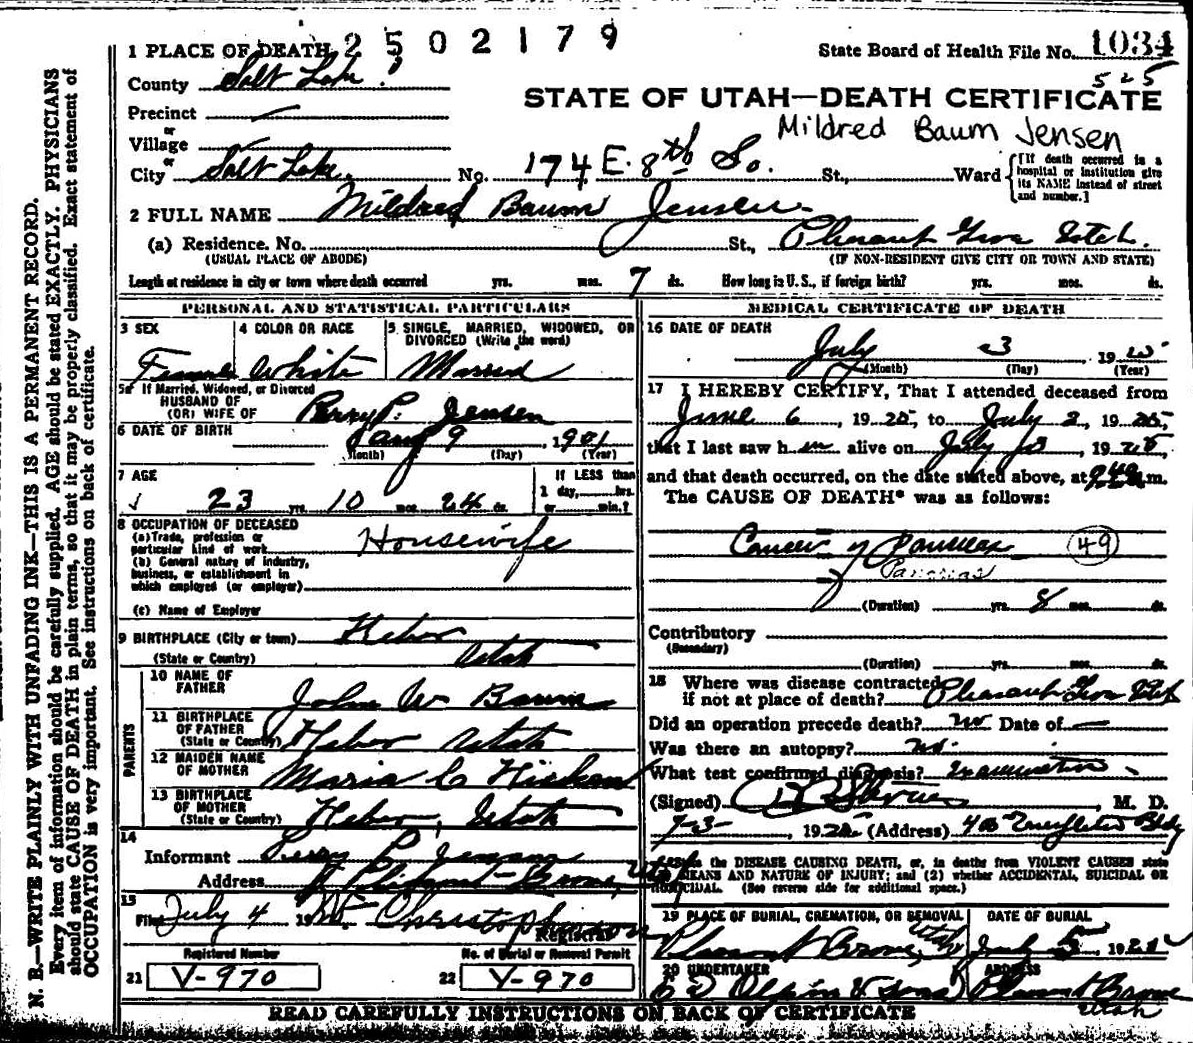 1 PLACE OF DEATH 2502179 State Board of Health File No. 1034
County Salt Lake 525
STATE OF UTAH—DEATH CERTIFICATE
Precinct —
Mildred Baum Jensen
or
Village
or
City Salt Lake No. 174 E. 8th So. St., Ward
[If death occurred in a
hospital or institution give
its NAME instead of street
and number.]
2 FULL NAME Mildred Baum Jensen
(a) Residence. No. St., Pleasant Grove Utah.
(USUAL PLACE OF ABODE) (IF NON-RESIDENT GIVE CITY OR TOWN AND STATE)
Length of residence in city or town where death occurred yrs. mos. 7 ds. How long in U. S., if foreign birth? yrs. mos. ds.
PERSONAL AND STATISTICAL PARTICULARS
3 SEX 4 COLOR OR RACE 5 SINGLE, MARRIED, WIDOWED, OR
DIVORCED (Write the word)
Female White Married
5a If Married, Widowed, or Divorced
HUSBAND OF
(OR) WIFE OF Perry P. Jensen
6 DATE OF BIRTH Aug 9, 1901
(Month) (Day) (Year)
7 AGE If LESS than
1 day, hrs.
23 yrs. 10 mos. 24 ds. or min.?
8 OCCUPATION OF DECEASED
(a) Trade, profession or
particular kind of work Housewife
(b) General nature of industry,
business, or establishment in
which employed (or employer)
(c) Name of Employer
9 BIRTHPLACE (City or town) Heber
(State or Country) Utah
PARENTS
10 NAME OF
FATHER John W Baum
11 BIRTHPLACE
OF FATHER
(State or Country) Heber Utah
12 MAIDEN NAME
OF MOTHER Maria C Hicken
13 BIRTHPLACE
OF MOTHER
(State or Country) Heber, Utah
14
Informant Perry P. Jensen
Address Pleasant Grove, Utah
15
Filed July 4 19 Christopherson
Registrar
Registered Number No. of Burial or Removal Permit
21 V-970 22 V-970
MEDICAL CERTIFICATE OF DEATH
16 DATE OF DEATH
July 3 1925
(Month) (Day) (Year)
17 I HEREBY CERTIFY, That I attended deceased from
June 6, 1925, to July 2, 1925,
that I last saw h alive on July, 1925
and that death occurred, on the date stated above, at m.
The CAUSE OF DEATH* was as follows:
Cancer of Pancreas (49)
Pancreas
(Duration) yrs. 8 mos. ds.
Contributory
(Secondary)
(Duration) yrs. mos. ds.
18 Where was disease contracted
if not at place of death? Pleasant Grove Utah
Did an operation precede death? no Date of —
Was there an autopsy? no.
What test confirmed diagnosis? Examination
(Signed) , M. D.
7-3-, 1925 (Address) Templeton Bldg
State the DISEASE CAUSING DEATH, or, in deaths from VIOLENT CAUSES state
MEANS AND NATURE OF INJURY; and (2) whether ACCIDENTAL, SUICIDAL OR
HOMICIDAL. (See reverse side for additional space.)
19 PLACE OF BURIAL, CREMATION, OR REMOVAL DATE OF BURIAL
Pleasant Grove, Utah July 5 1925
20 UNDERTAKER ADDRESS
Olpin & Sons Pleasant Grove
Utah
READ CAREFULLY INSTRUCTIONS ON BACK OF CERTIFICATE
N. B.—WRITE PLAINLY WITH UNFADING INK—THIS IS A PERMANENT RECORD.
Every item of information should be carefully supplied. AGE should be stated EXACTLY. PHYSICIANS
should state CAUSE OF DEATH in plain terms, so that it may be properly classified. Exact statement of
OCCUPATION is very important. See instructions on back of certificate.